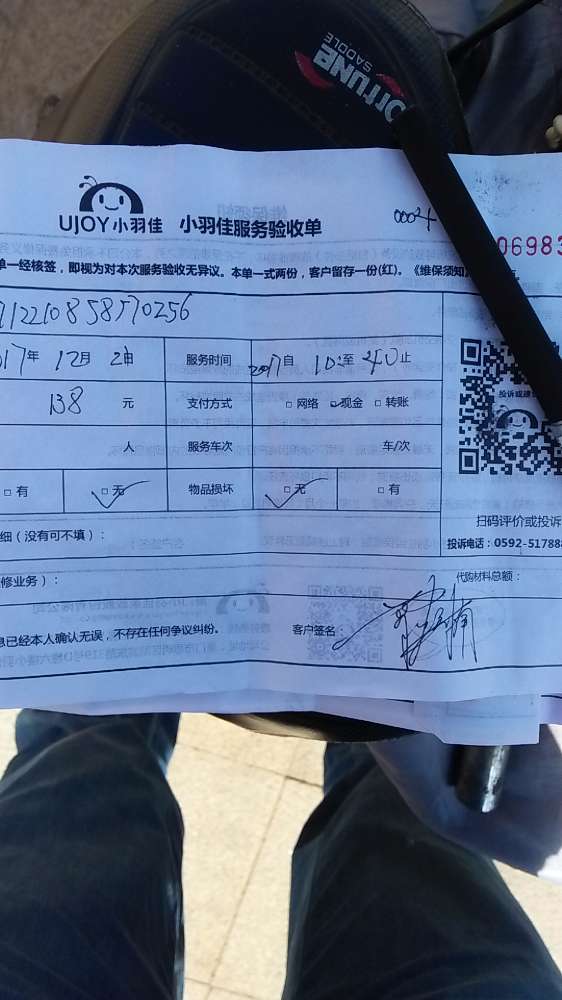 FORTUNE
SADDLE
UJOY小羽佳 小羽佳服务验收单 00024
06983
单一经核签，即视为对本次服务验收无异议。本单一式两份，客户留存一份(红)。《维保须知》
712210858570256
017年 12月 服务时间 2017自 至 止
138 元 支付方式 □ 网络 现金 □ 转账
投诉或建议
人 服务车次 车/次
□ 有 □ 无 物品损坏 □ 无 □ 有
扫码评价或投诉
细（没有可不填）： 投诉电话：0592-51788
修业务）： 代购材料总额：
息已经本人确认无误，不存在任何争议纠纷。 客户签名